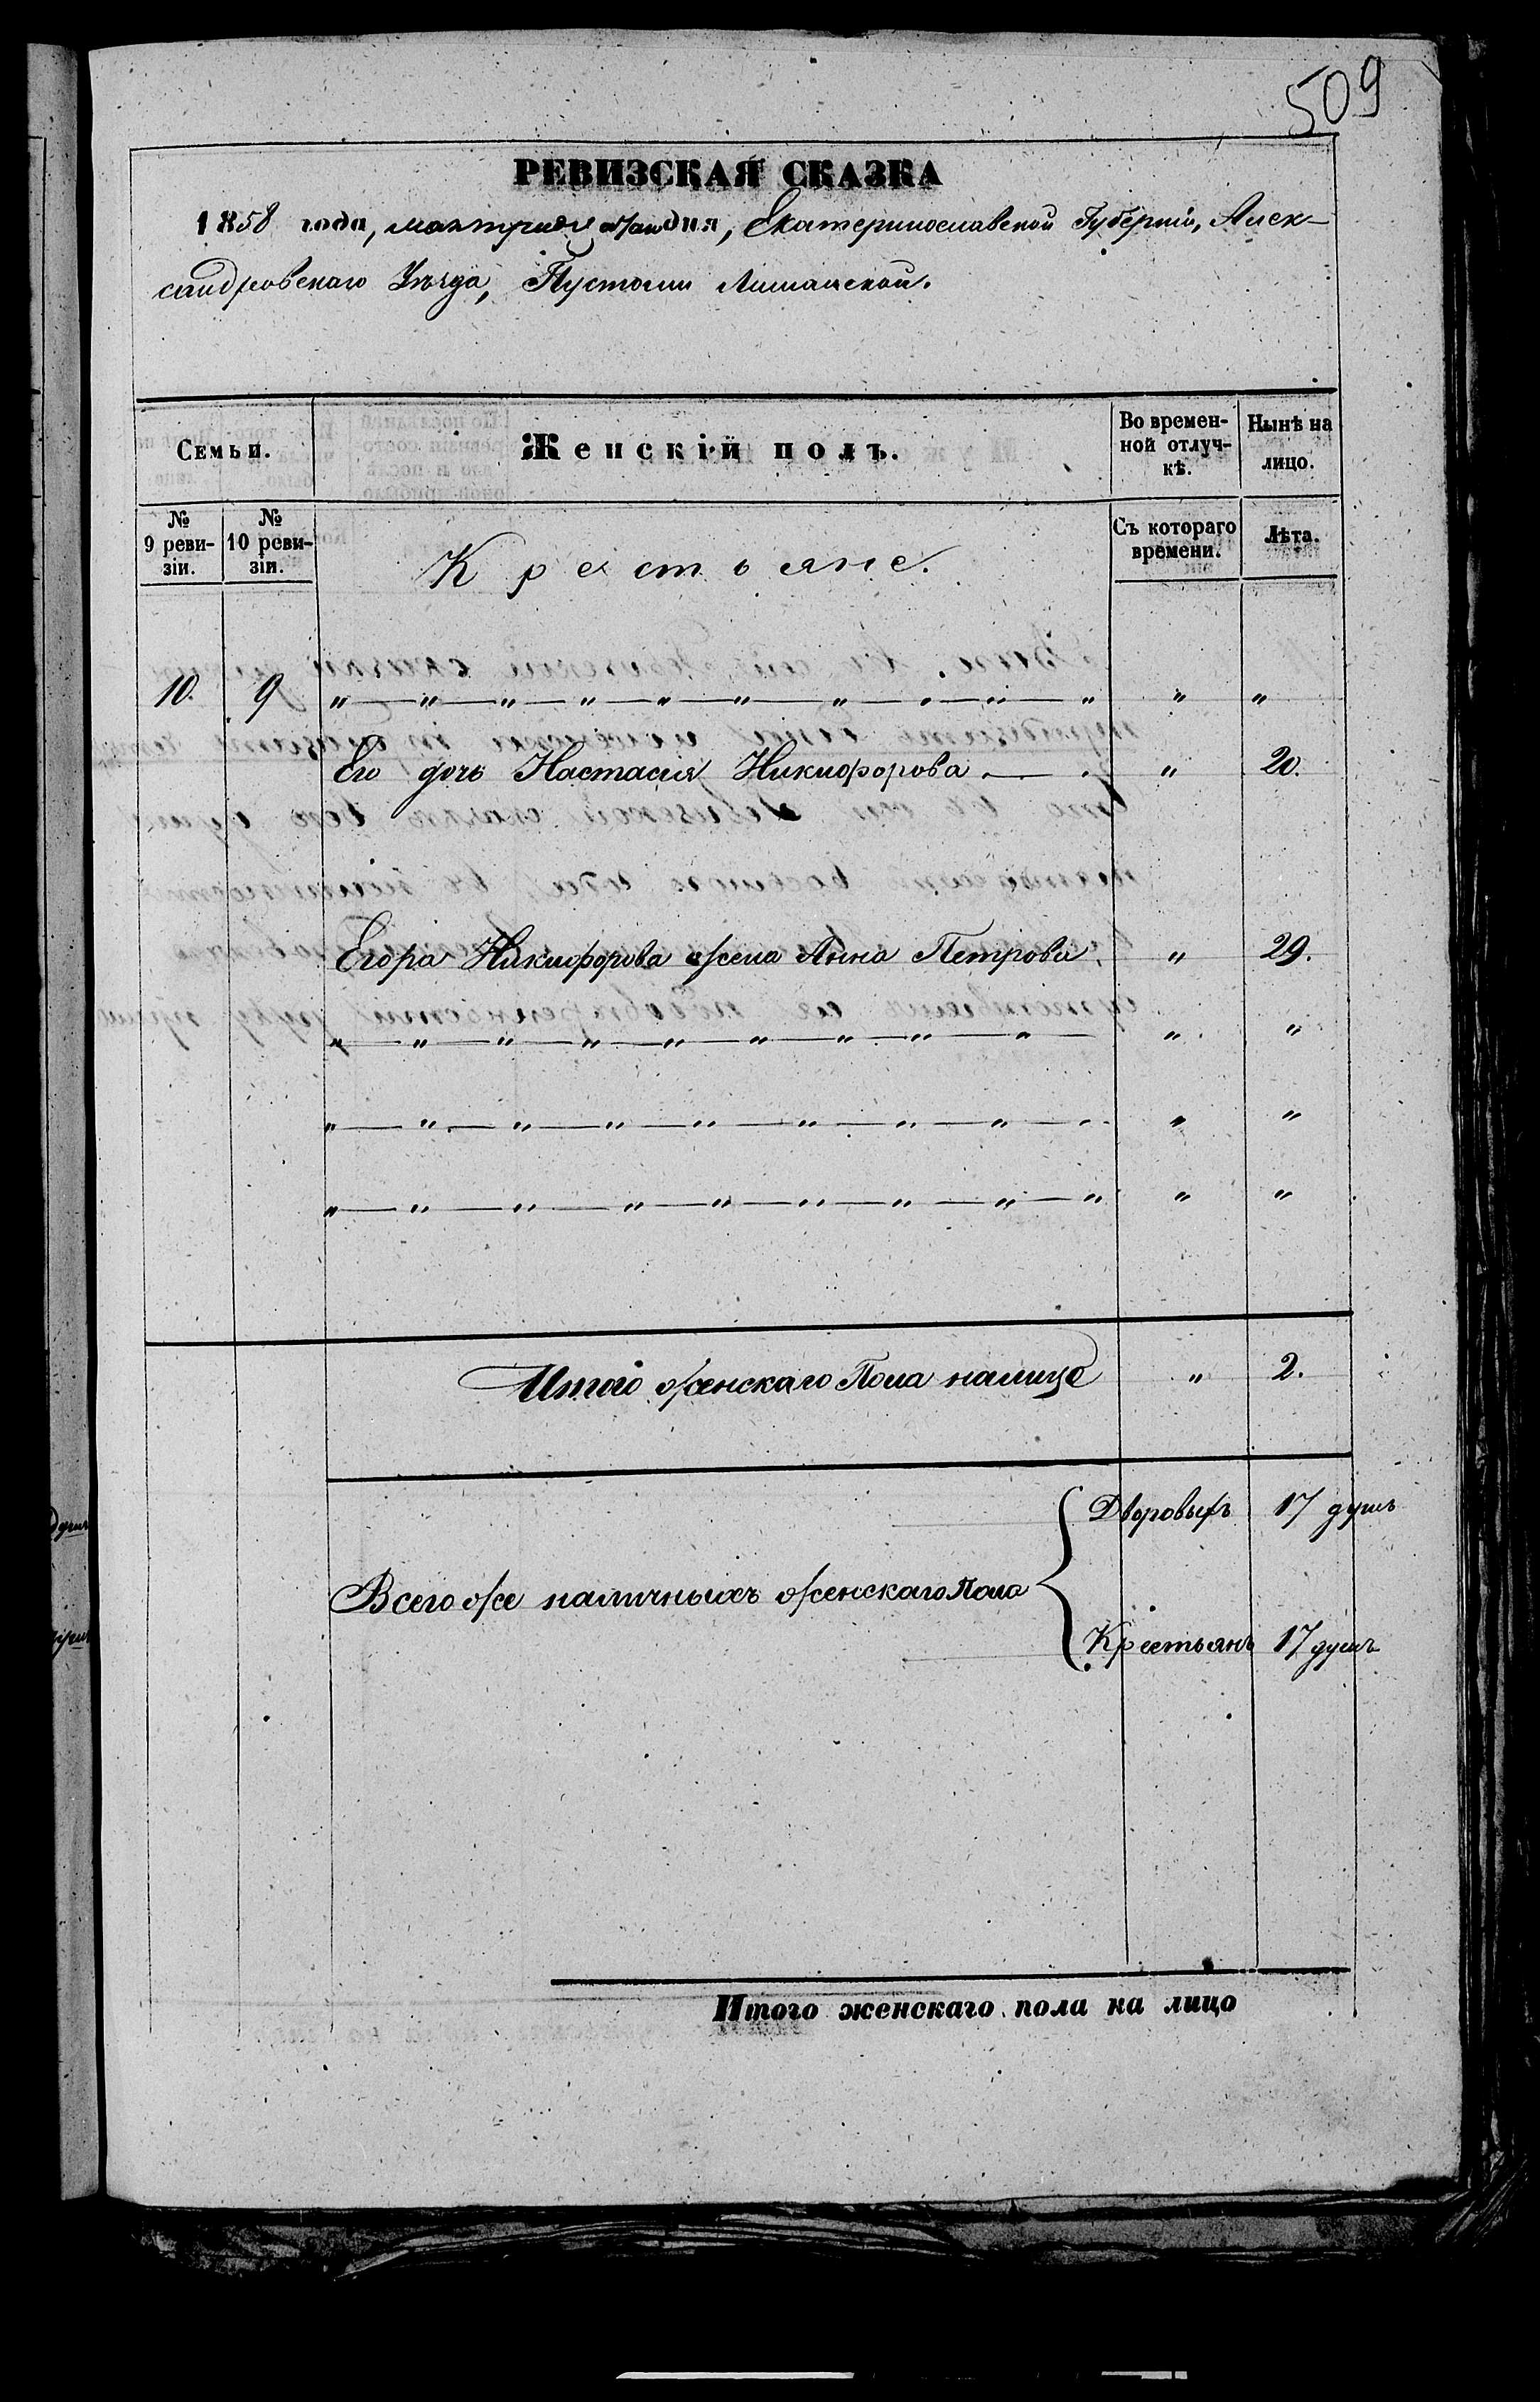 509
РЕВИЗСКАЯ СКАЗКА
1858 года, дня, Екатеринославской Губерніи, Алек-
сандровскаго Уѣзда, Пустоши
Семьи.
Женскій полъ.
Во времен-
ной отлуч-
кѣ.
Нынѣ на
лицо.
№
9 реви-
зіи.
№
10 реви-
зіи.
Крестьяне.
Съ котораго
времени.
Лѣта.
10. 9 " — " — " — " — " — " — " — " — " — " " "
Его дочь Настасія Никифорова — " 20.
Егора Никифорова жена Анна Петрова. " 29.
" — " — " — " — " — " — " — " — " — " "
" — " — " — " — " — " — " — " — " " "
" — " — " — " — " — " — " — " — " " "
Итого женскаго Пола налице " 2.
Дворовыхъ 17 душъ
Всего же наличныхъ женскаго Пола
Крестьянъ 17 душъ
Итого женскаго пола на лицо